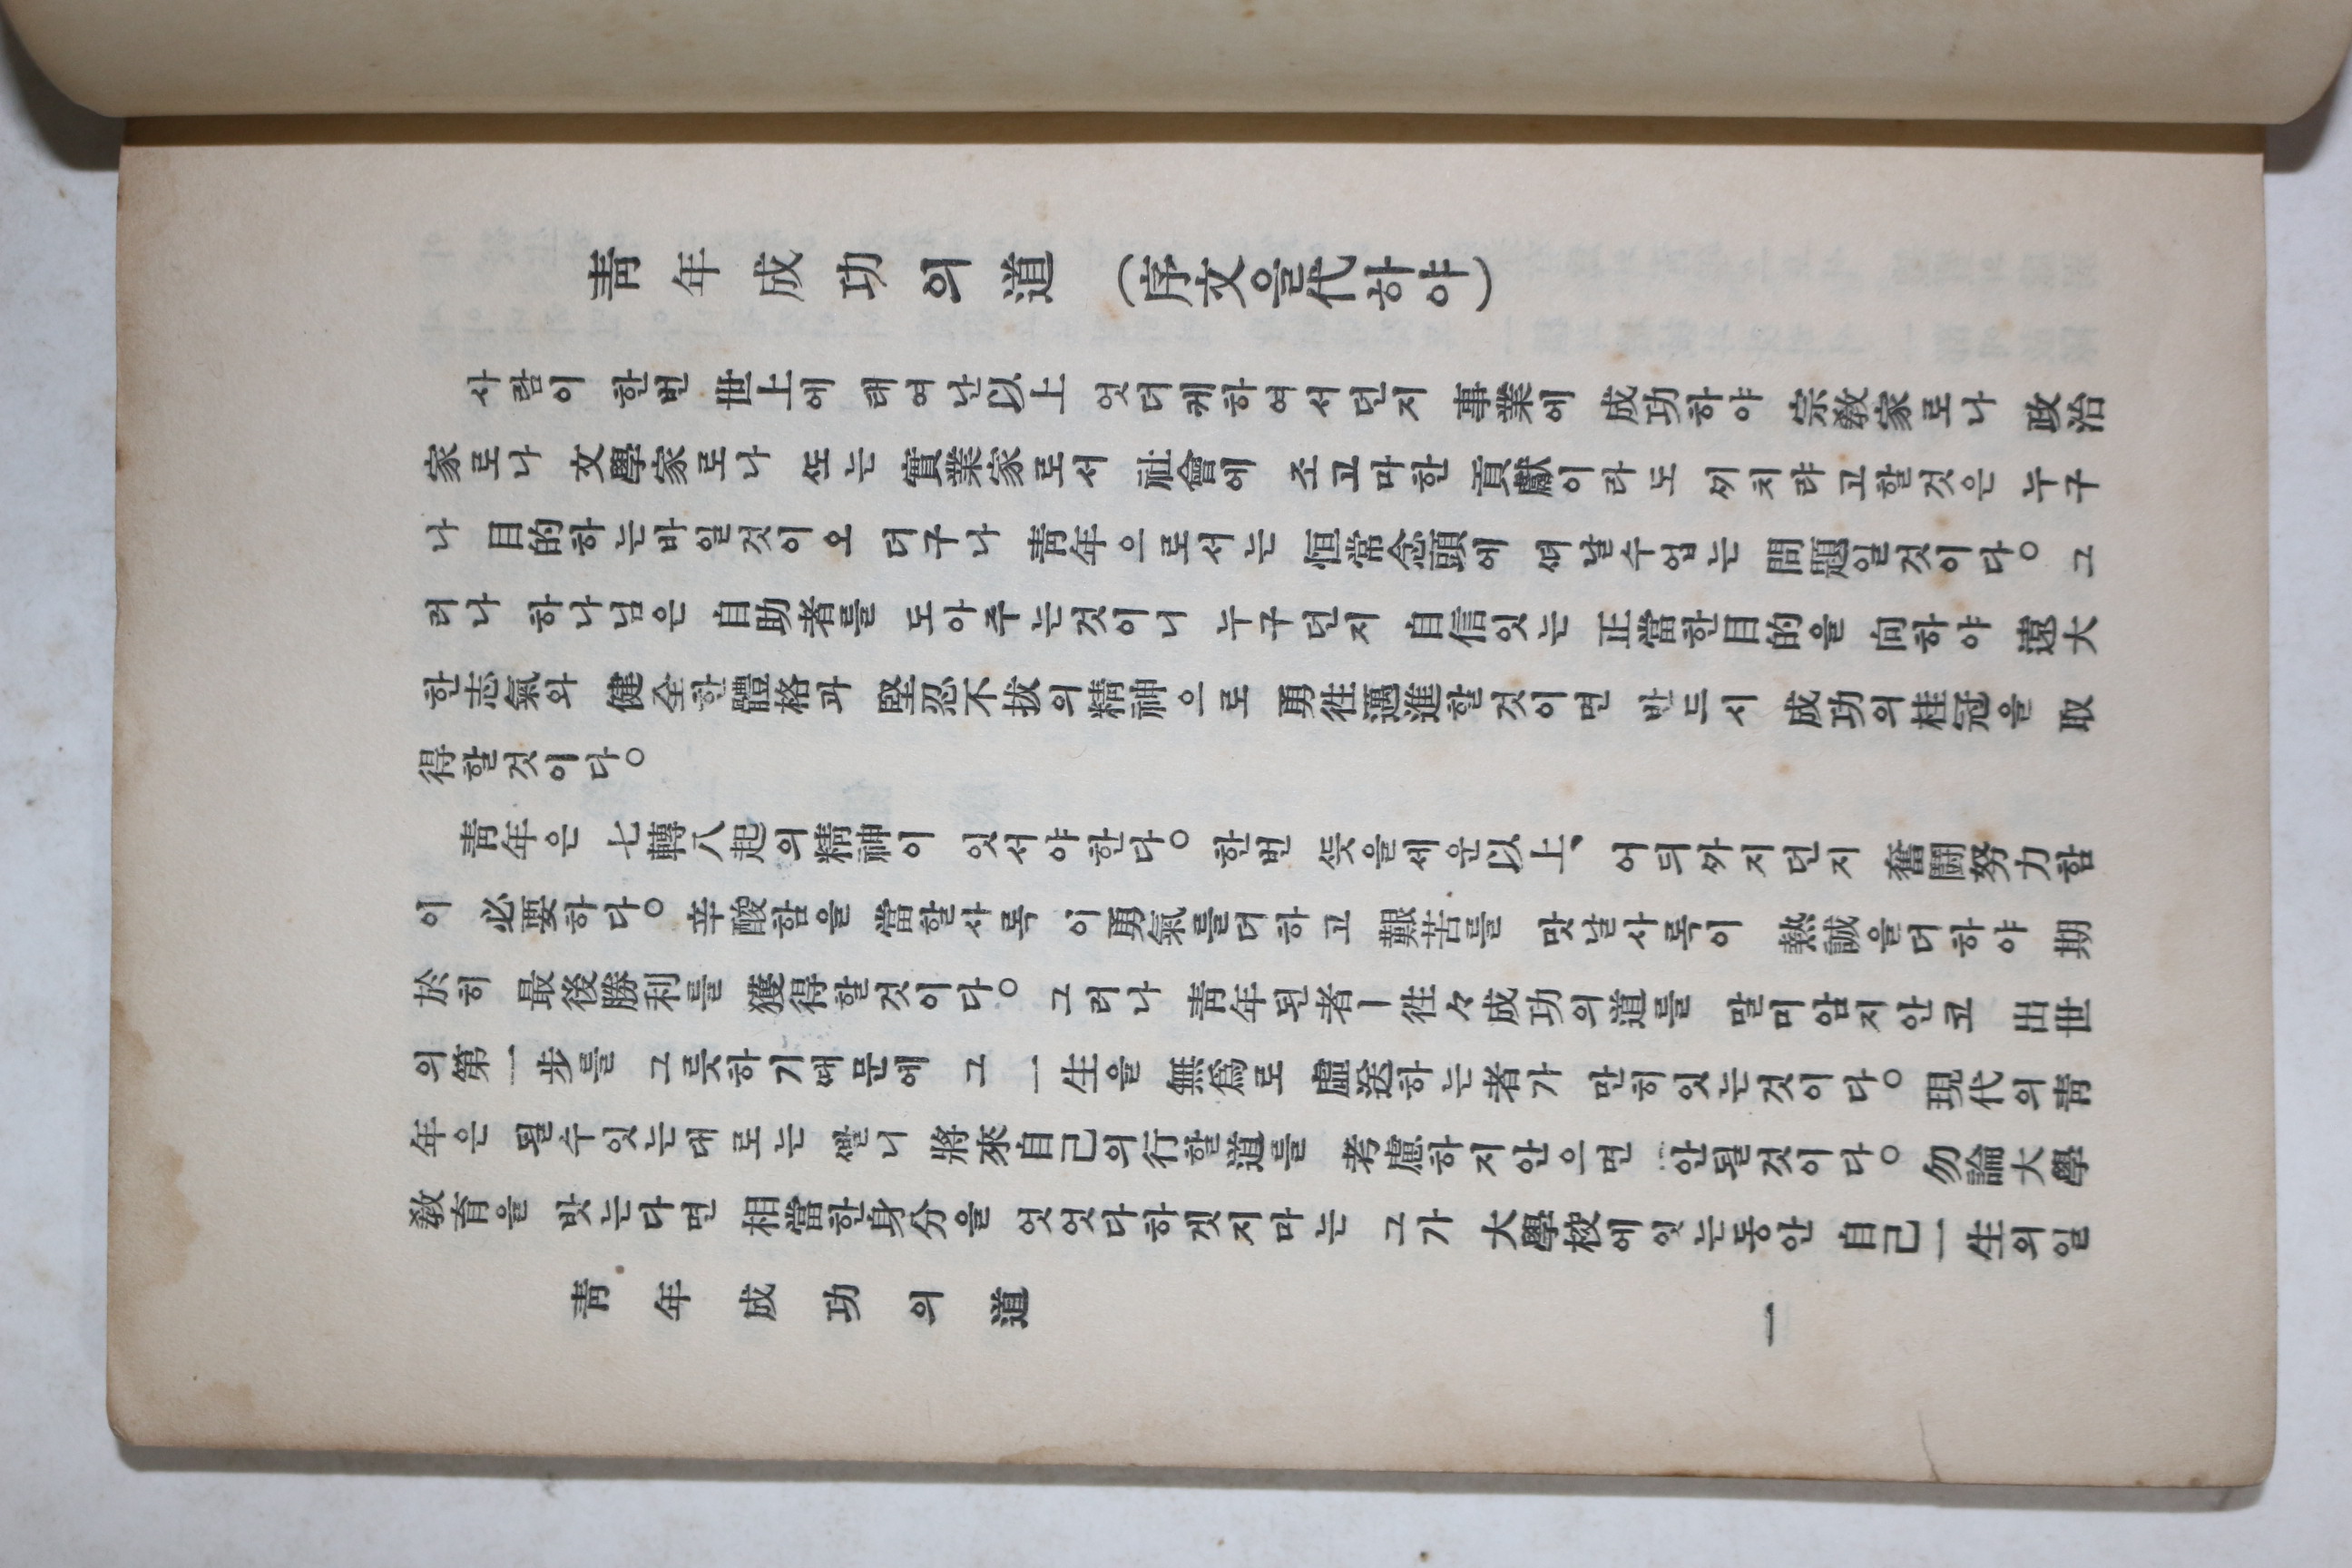 靑年成功의道 (序文을代하야)
사람이 한번 世上에 태여난以上 엇더케하여서던지 事業에 成功하야 宗敎家로나 政治
家로나 文學家로나 ᄯᅩ는 實業家로서 社會에 조고마한 貢獻이라도 ᄭᅵ치랴고할것은 누구
나 目的하는바일것이오 더구나 靑年으로서는 恒常念頭에 ᄯᅥ날수업는 問題일것이다。 그
러나 하나님은 自助者를 도아주는것이니 누구던지 自信잇는 正當한目的을 向하야 遠大
한志氣와 健全한體格과 堅忍不拔의精神으로 勇往邁進할것이면 반드시 成功의桂冠을 取
得할것이다。
靑年은 七轉八起의精神이 잇서야한다。 한번 ᄯᅳᆺ을세운以上、 어듸ᄭᅡ지던지 奮鬪努力함
이 必要하다。 辛酸함을 當할사록 이勇氣를더하고 艱苦를 맛날사록이 熱誠을더하야 期
於히 最後勝利를 獲得할것이다。 그러나 靑年된者ㅣ往々成功의道를 말미암지안코 出世
의第一步를 그릇하기때문에 그 一生을 無爲로 虛送하는者가 만히잇는것이다。 現代의靑
年은 될수잇는대로는 ᄲᅡᆯ니 將來自己의行할道를 考慮하지안으면 안될것이다。 勿論大學
敎育을 밧는다면 相當한身分을 엇엇다하겟지마는 그가 大學校에잇는동안 自己一生의일
靑年成功의道
一